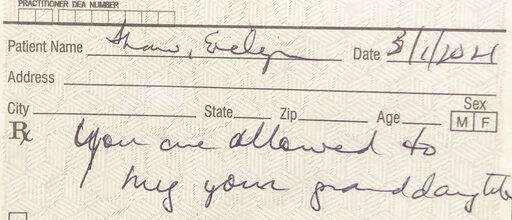 PRACTITIONER DEA NUMBER
Patient Name Shaw, Evelyn Date 3/1/2021
Address
City State Zip Age Sex
M F
Rx You are allowed to
hug your granddaughter